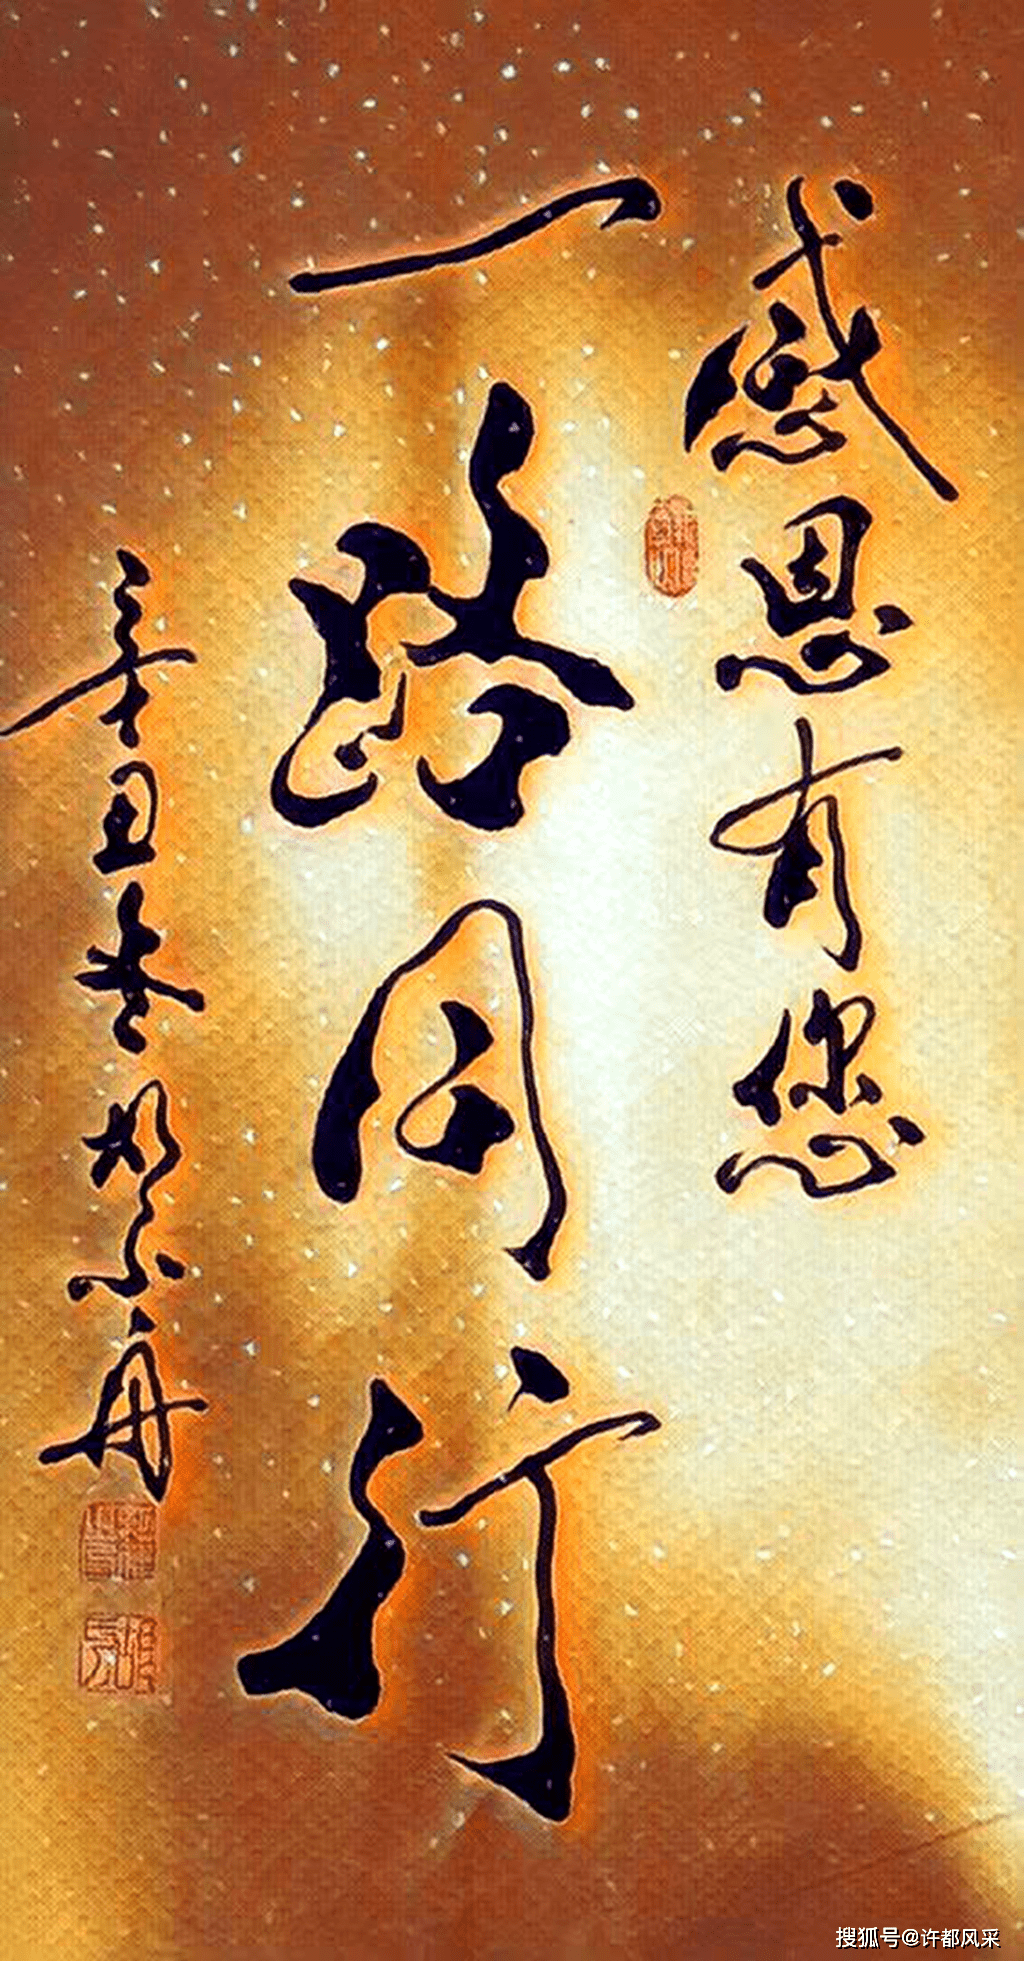 感恩有您
一路同行
辛丑春
搜狐号@许都风采